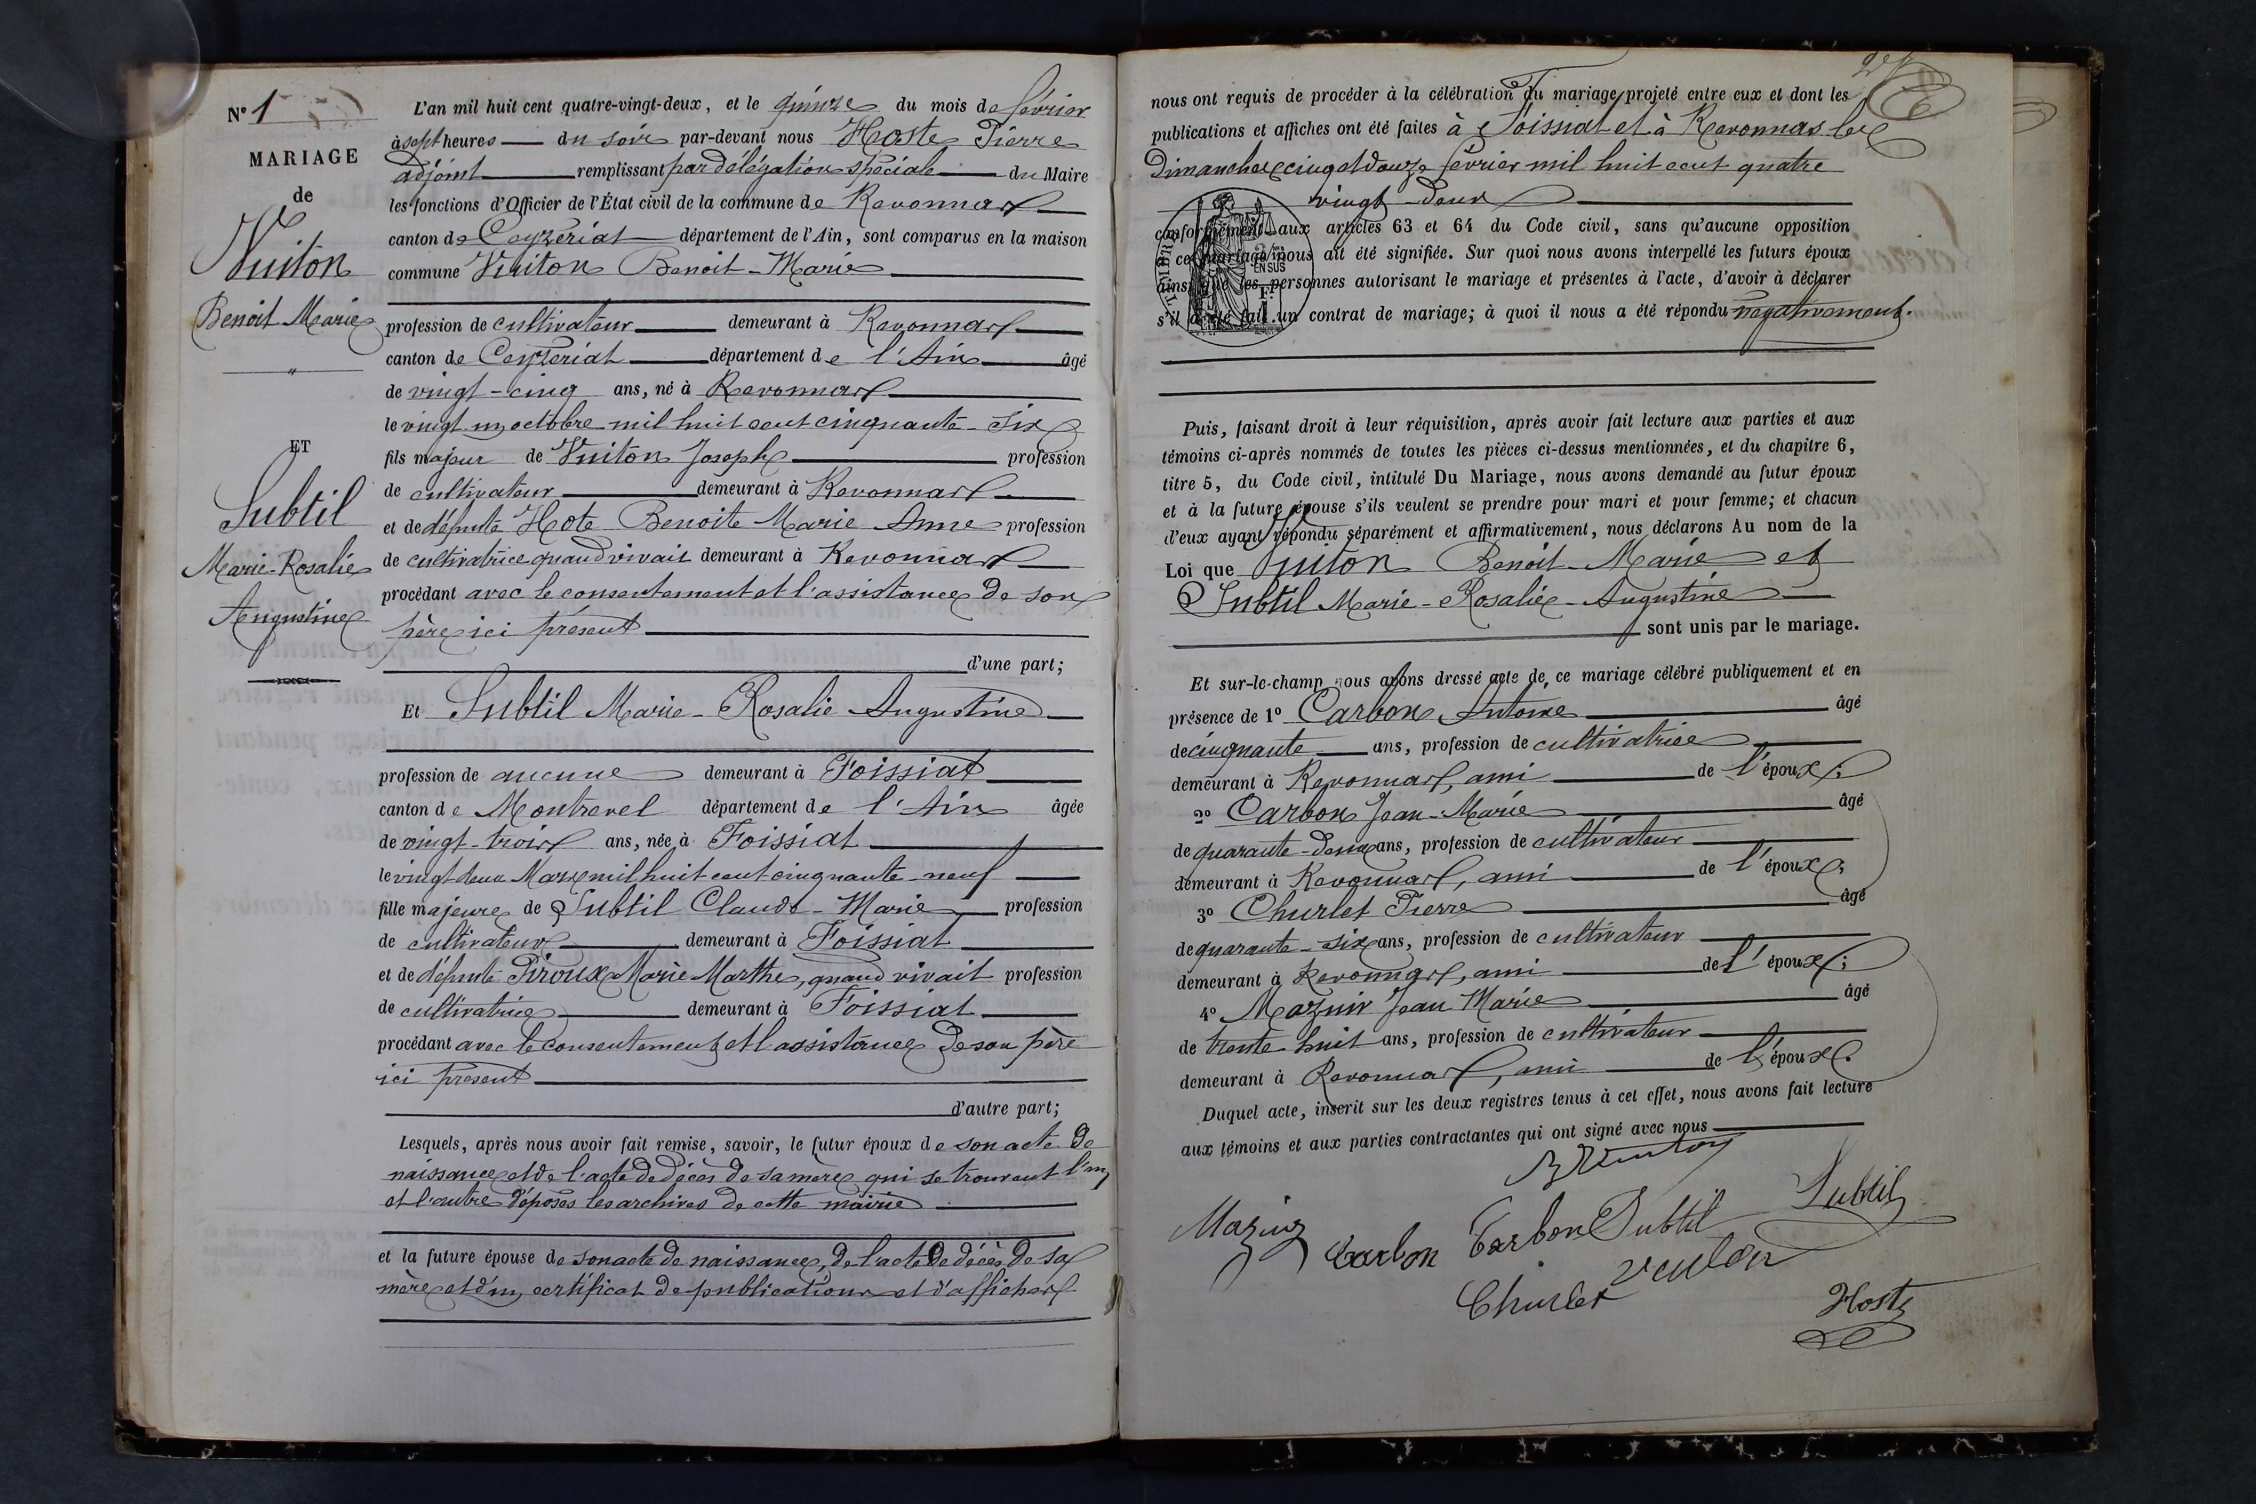 N° 1
MARIAGE
de
Vuiton
Benoit Marie
"
ET
Subtil
Marie-Rosalie
Augustine
L'an mil huit cent quatre-vingt-deux, et le quinze du mois de février
à sept heures du soir par-devant nous Hoste Pierre
adjoint remplissant par délégation spéciale du Maire
les fonctions d'Officier de l'État civil de la commune de Revonnas
canton de Ceyzériat département de l'Ain, sont comparus en la maison
commune Vuiton Benoit-Marie
profession de cultivateur demeurant à Revonnas
canton de Ceyzeriat département de l'Ain âgé
de vingt-cinq ans, né à Revonnas
le vingt un octobre mil huit cent cinquante-six
fils majeur de Vuiton Joseph profession
de cultivateur demeurant à Revonnas
et de défunte Hote Benoite Marie Anne profession
de cultivatrice quand vivait demeurant à Revonnas
procédant avec le consentement et l'assistance de son
père ici présent
d'une part;
Et Subtil Marie-Rosalie Augustine
profession de aucune demeurant à Foissiat
canton de Montrevel département de l'Ain âgée
de vingt-trois ans, née à Foissiat
le vingt deux Mars mil huit cent cinquante-neuf
fille majeure de Subtil Claude-Marie profession
de cultivateur demeurant à Foissiat
et de défunte Piroux Marie Marthe, quand vivait profession
de cultivatrice demeurant à Foissiat
procédant avec le consentement et l'assistance de son père
ici présent
d'autre part;
Lesquels, après nous avoir fait remise, savoir, le futur époux de son acte de
naissance et de l'acte de décès de sa mère qui se trouvent l'un
et l'autre déposés les archives de cette mairie
et la future épouse de son acte de naissance, de l'acte de décès de sa
mère et d'un certificat de publications et d'affiches
nous ont requis de procéder à la célébration du mariage projeté entre eux et dont les
publications et affiches ont été faites à Foissiat et à Revonnas les
Dimanches cinq et douze février mil huit cent quatre
vingt-deux
conformément aux articles 63 et 64 du Code civil, sans qu'aucune opposition
à ce mariage nous ait été signifiée. Sur quoi nous avons interpellé les futurs époux
ainsi que les personnes autorisant le mariage et présentes à l'acte, d'avoir à déclarer
s'il a été fait un contrat de mariage; à quoi il nous a été répondu négativement.
TIMBRE
2/10
EN SUS
Puis, faisant droit à leur réquisition, après avoir fait lecture aux parties et aux
témoins ci-après nommés de toutes les pièces ci-dessus mentionnées, et du chapitre 6,
titre 5, du Code civil, intitulé Du Mariage, nous avons demandé au futur époux
et à la future épouse s'ils veulent se prendre pour mari et pour femme; et chacun
d'eux ayant répondu séparément et affirmativement, nous déclarons Au nom de la
Loi que Vuiton Benoit-Marie et
Subtil Marie-Rosalie-Augustine
sont unis par le mariage.
Et sur-le-champ nous avons dressé acte de ce mariage célébré publiquement et en
présence de 1° Carbon Antoine âgé
de cinquante ans, profession de cultivatrice
demeurant à Revonnas, ami de l'époux;
2° Carbon Jean-Marie âgé
de quarante-deux ans, profession de cultivateur
demeurant à Revonnas, ami de l'époux;
3° Churlet Pierre âgé
de quarante-six ans, profession de cultivateur
demeurant à Revonnas, ami de l'époux;
4° Mazuir Jean Marie âgé
de trente huit ans, profession de cultivateur
demeurant à Revonnas, ami de l'époux.
Duquel acte, inscrit sur les deux registres tenus à cet effet, nous avons fait lecture
aux témoins et aux parties contractantes qui ont signé avec nous
B Vuiton
Mazuir Carbon Carbon Subtil Subtil
Churlet Vuiton
Hoste